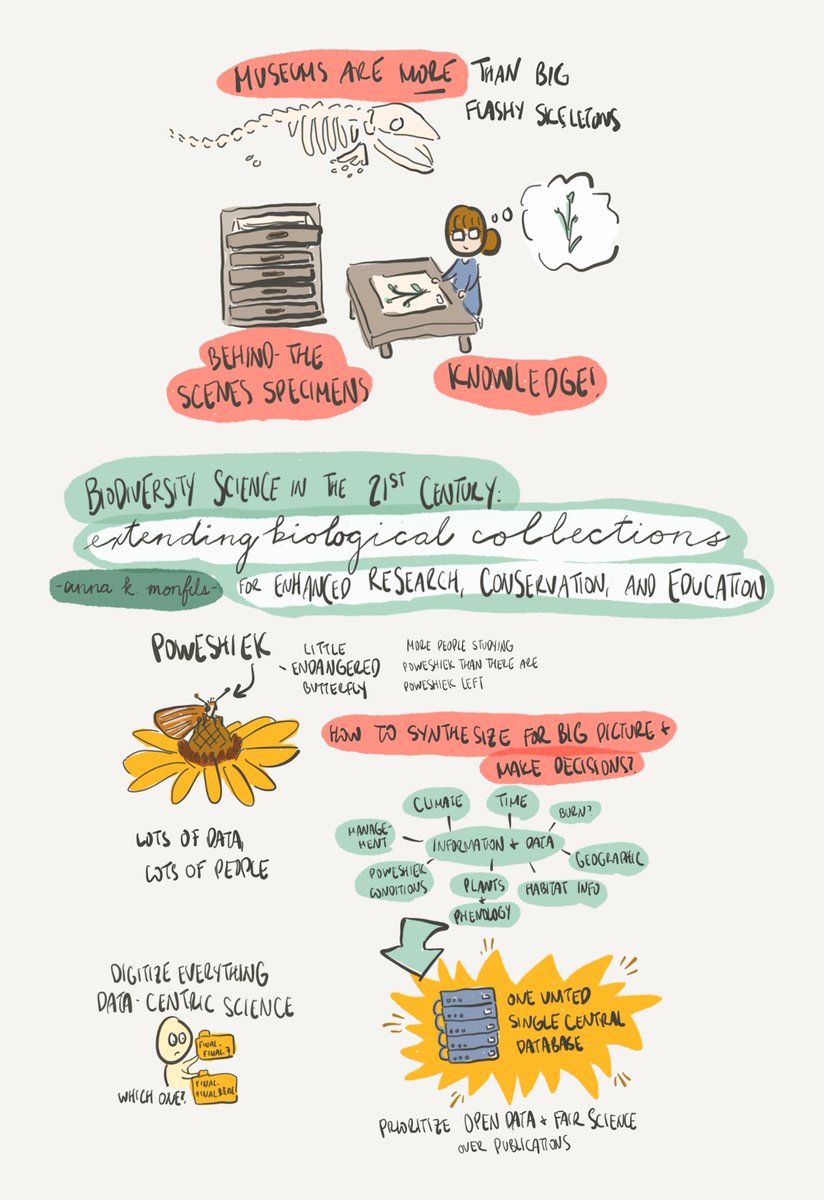 MUSEUMS ARE MORE THAN BIG
FLASHY SKELETONS
BEHIND-THE
SCENES SPECIMENS
KNOWLEDGE!
BIODIVERSITY SCIENCE IN THE 21ST CENTURY:
extending biological collections
-anna k monfils-
FOR ENHANCED RESEARCH, CONSERVATION, AND EDUCATION
POWESHIEK
LITTLE
- ENDANGERED
BUTTERFLY
MORE PEOPLE STUDYING
POWESHIEK THAN THERE ARE
POWESHIEK LEFT
LOTS OF DATA,
LOTS OF PEOPLE
HOW TO SYNTHESIZE FOR BIG PICTURE +
MAKE DECISIONS?
CLIMATE
TIME
BURN?
MANAGE-
MENT
INFORMATION + DATA
GEOGRAPHIC
POWESHIEK
CONDITIONS
PLANTS
+
PHENOLOGY
HABITAT INFO
DIGITIZE EVERYTHING
DATA-CENTRIC SCIENCE
FINAL.
FINAL.7
FINAL.
FINALREAL
WHICH ONE?
ONE UNITED
SINGLE CENTRAL
DATABASE
PRIORITIZE OPEN DATA + FAIR SCIENCE
OVER PUBLICATIONS